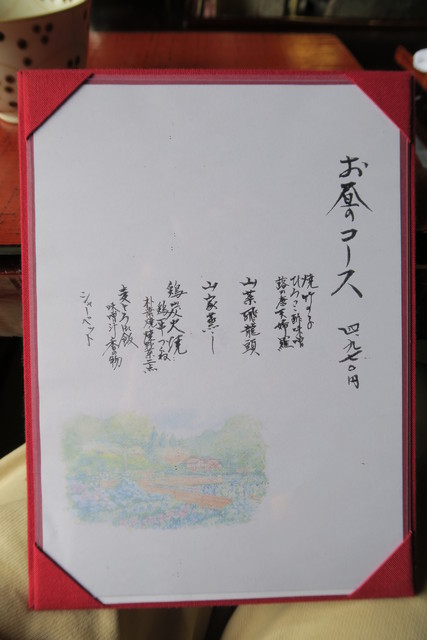 お昼のコース 四、九七〇円
焼竹の子
ひろっこ酢味噌
蕗の唐天婦羅
山菜飛龍頭
山家蒸し
鶏炭火焼
鶏軍つくね
朴葉焼 焼野菜二点
麦とろ御飯
味噌汁 香の物
シャーベット